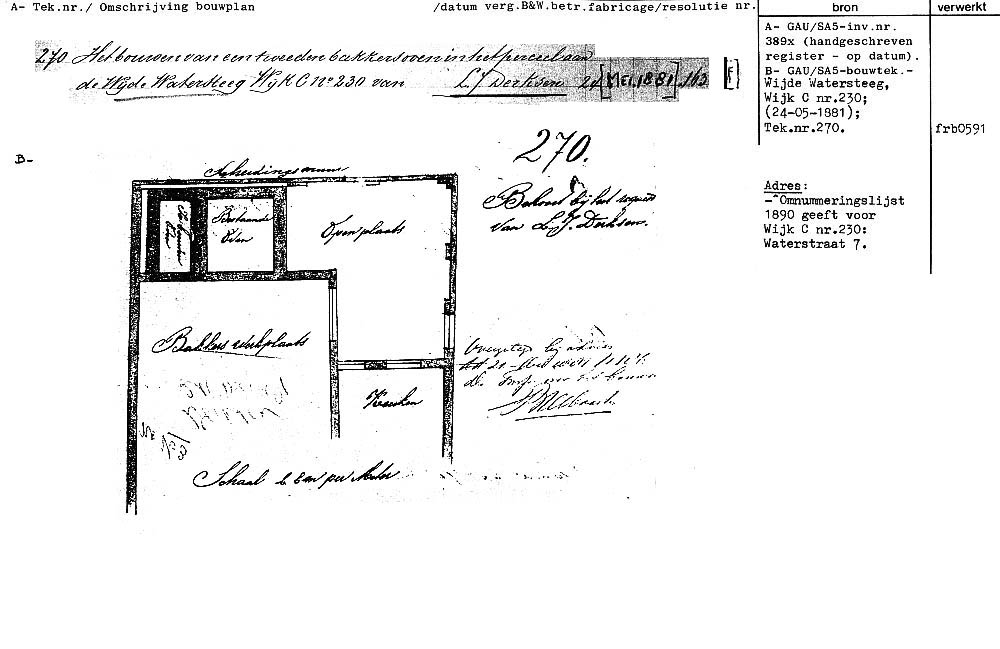 A- Tek.nr./ Omschrijving bouwplan
/datum verg.B&W.betr.fabricage/resolutie nr.
bron
verwerkt
270 Het bouwen van een tweeden bakkersoven in het perceel aan
de Wijde Watersteeg Wijk C No 230 van L. J. Derksen 24 [MEI. 1881] 163 [F]
A- GAU/SA5-inv.nr.
389x (handgeschreven
register - op datum).
B- GAU/SA5-bouwtek.-
Wijde Watersteeg,
Wijk C nr.230;
(24-05-1881);
Tek.nr.270.
frb0591
Adres:
-Omnummeringslijst
1890 geeft voor
Wijk C nr.230:
Waterstraat 7.
B-
270.
Behoort bij het request
van L. J. Derksen.
Scheidingsmuur
Bestaande
Oven
Open plaats
Bakkers werkplaats
Keuken
Schaal 1 à 100 per Meter